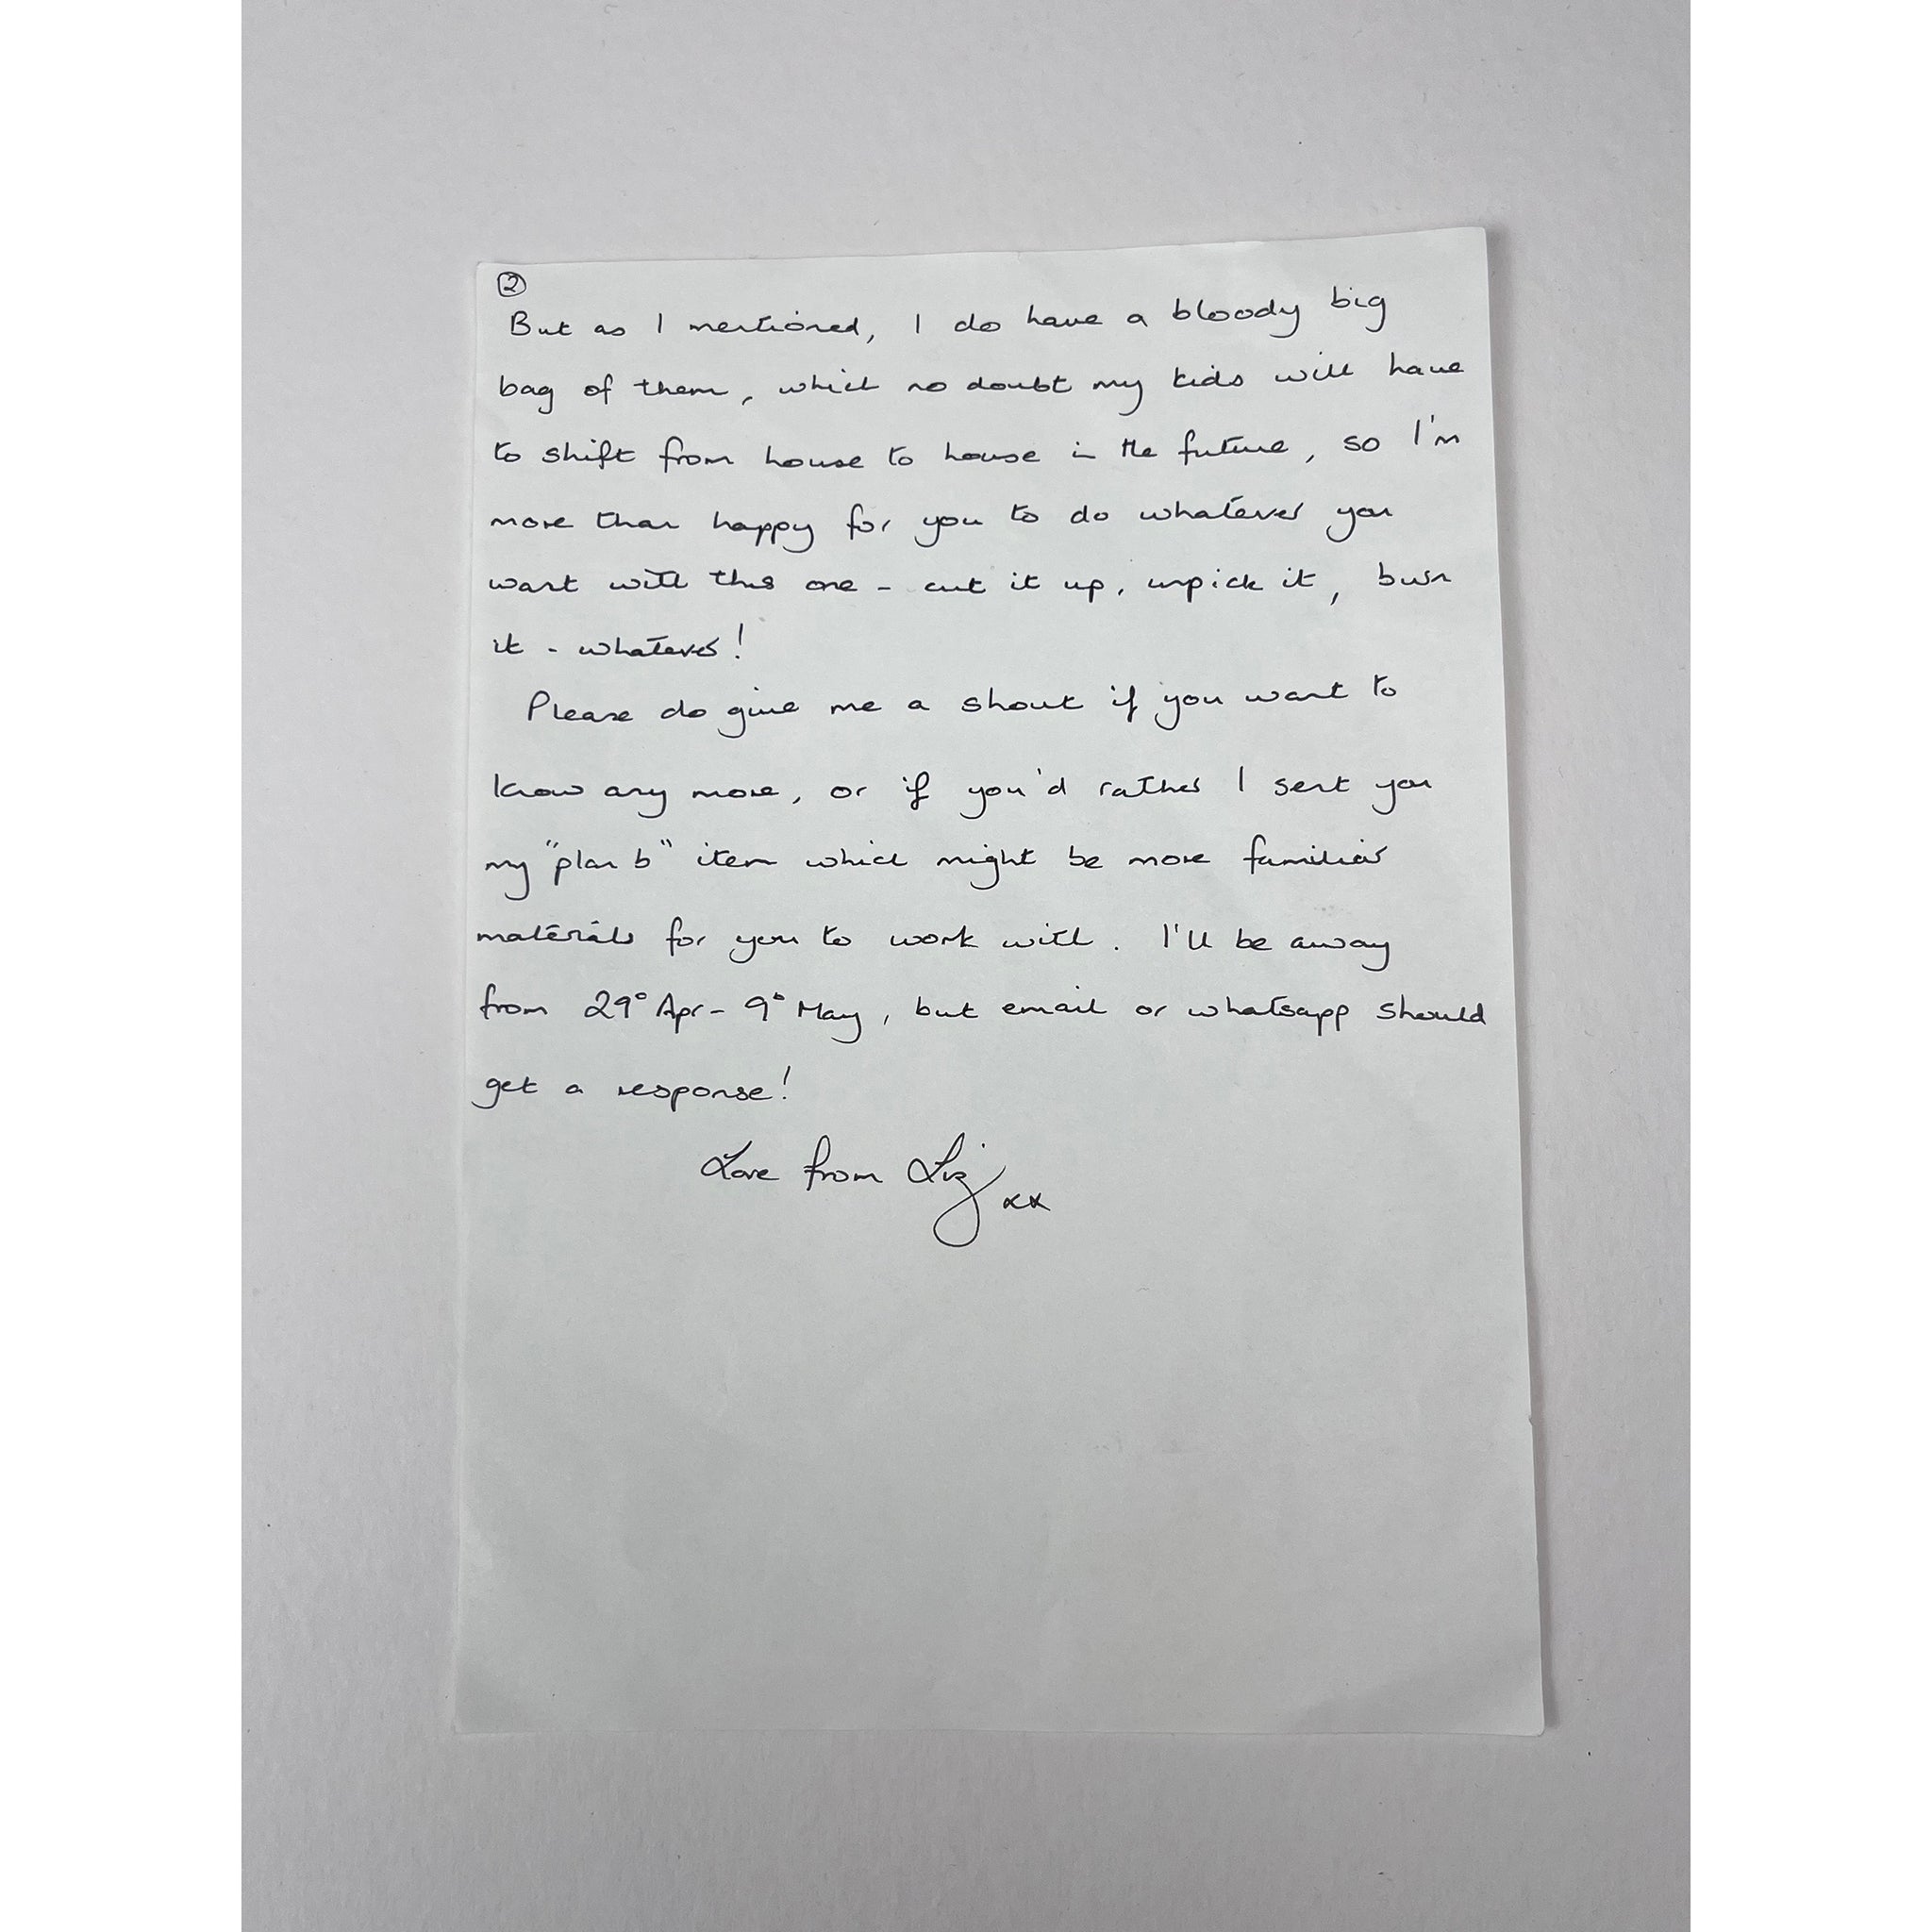 ②
But as I mentioned, I do have a bloody big
bag of them, which no doubt my kids will have
to shift from house to house in the future, so I'm
more than happy for you to do whatever you
want with this one - cut it up, unpick it, burn
it - whatever!
Please do give me a shout if you want to
know any more, or if you'd rather I sent you
my "plan b" item which might be more familiar
materials for you to work with. I'll be away
from 29° Apr - 9° May, but email or whatsapp should
get a response!
Love from Liz xx